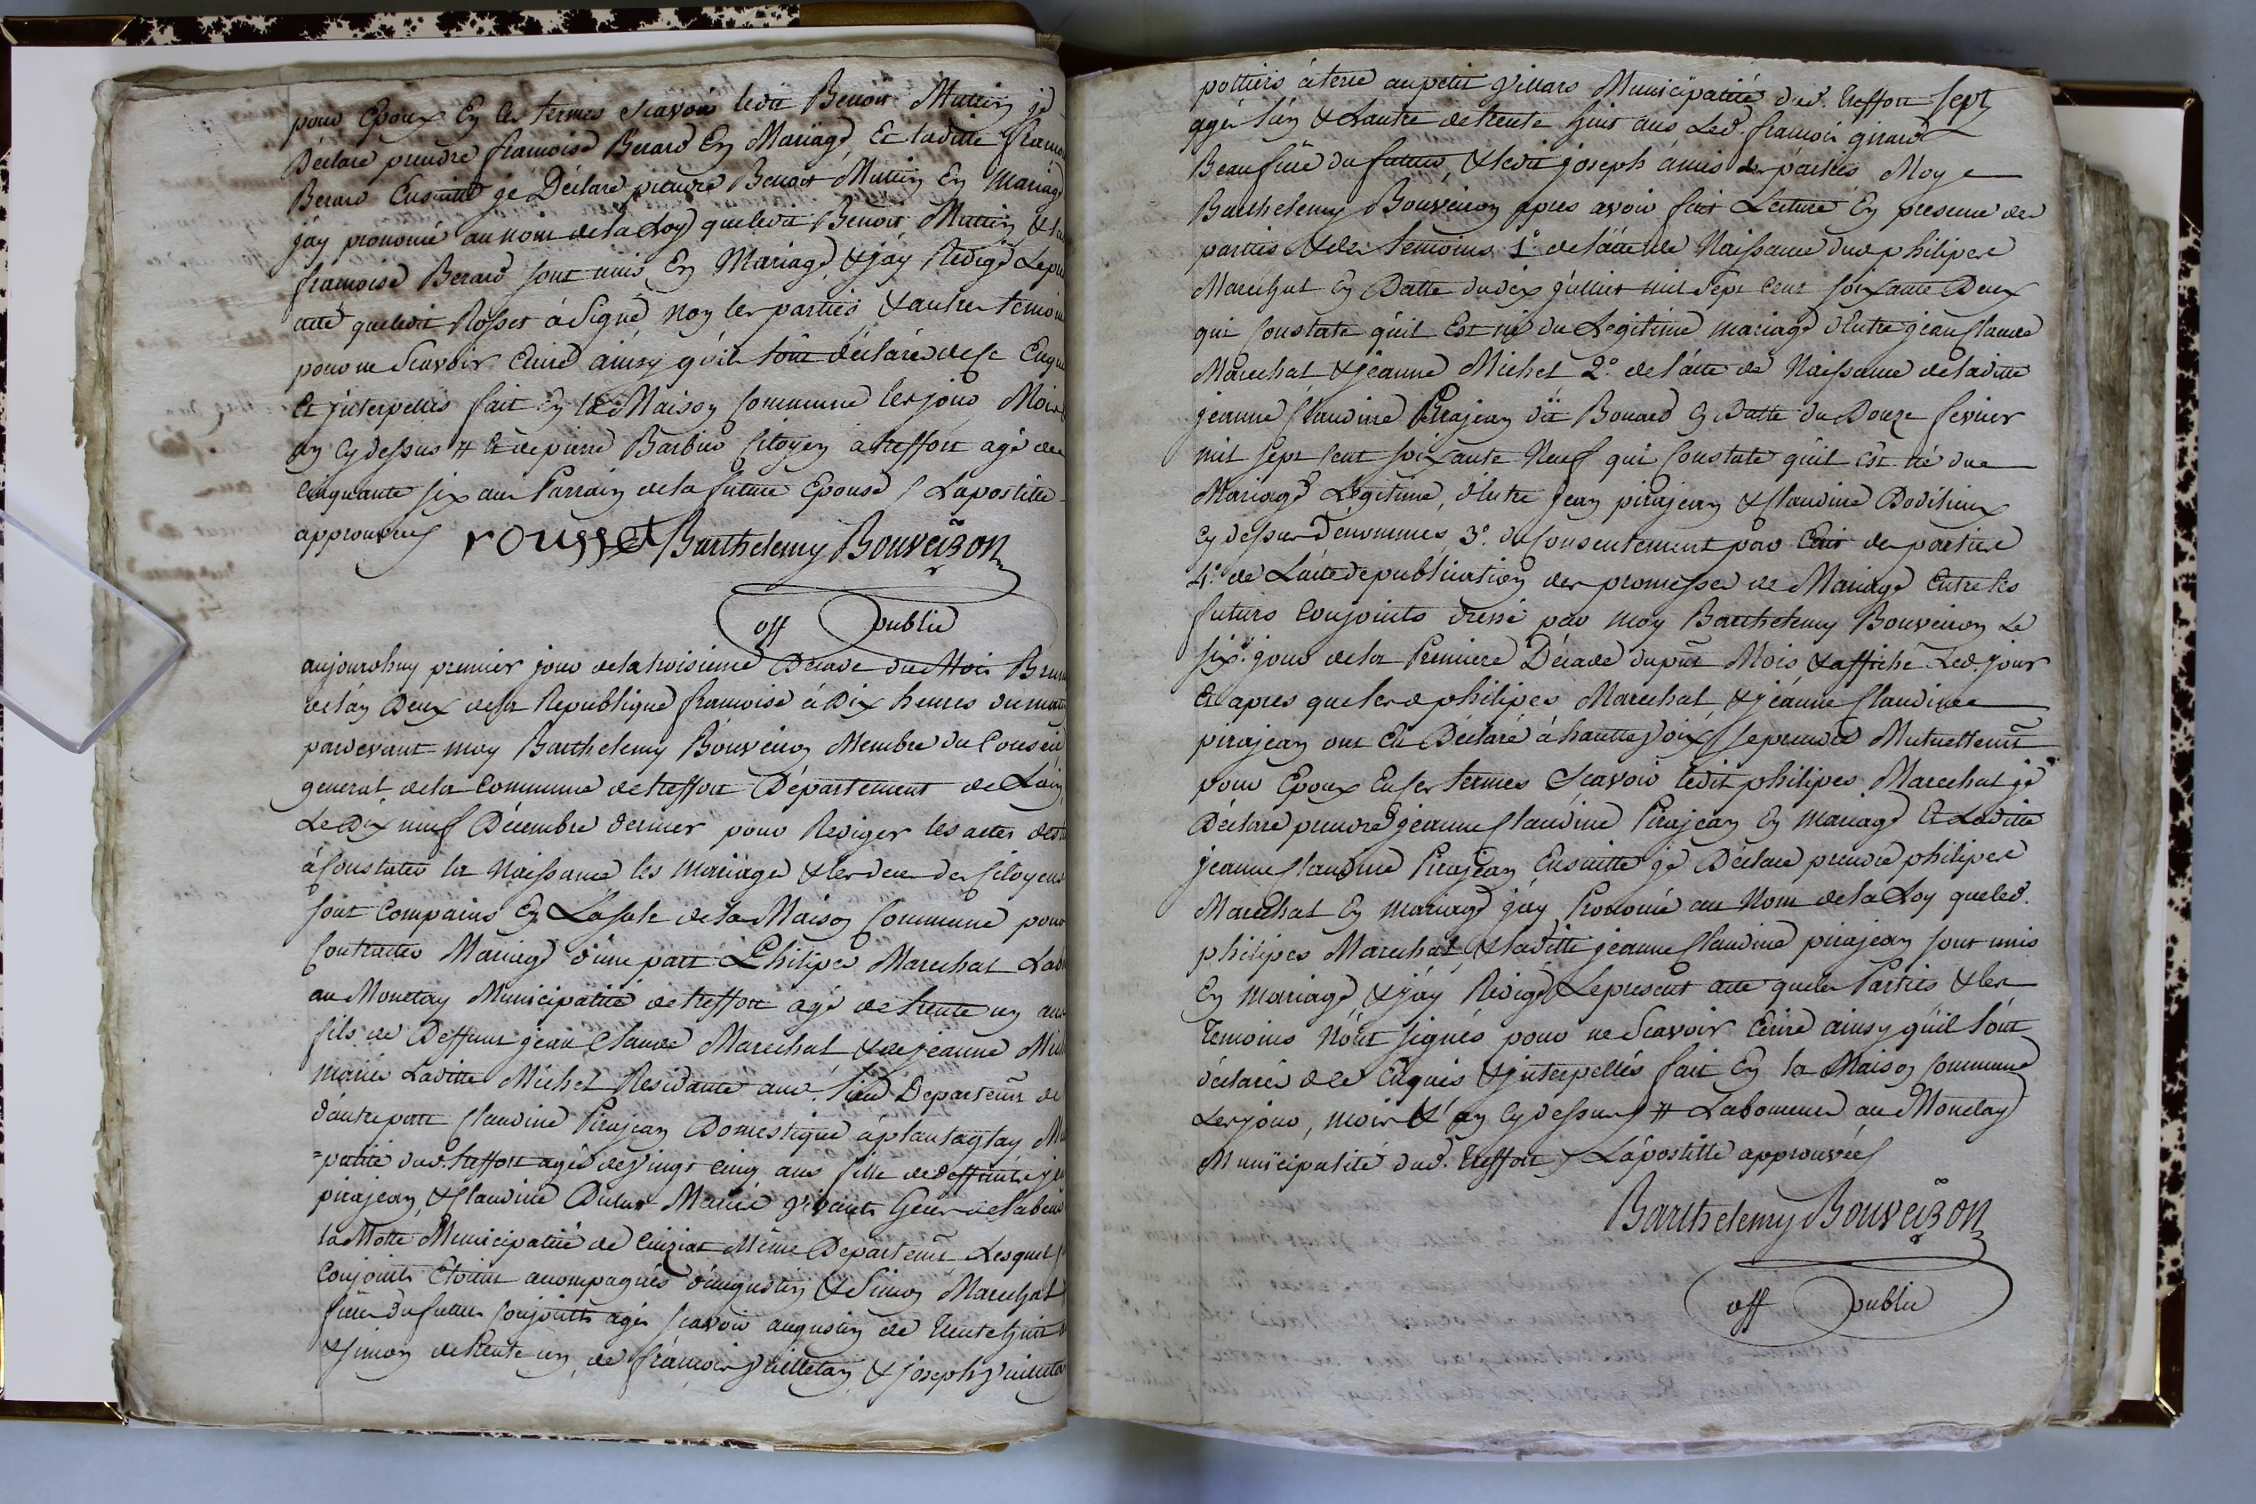 pour Epoux En Ces termes scavoir ledit Benoit Muttin je
Déclare prendre françoise Berard En Mariage, Et laditte franç
Berard Ensuitte je Déclare prendre Benoit Muttin En Mariage
j'ay prononcé au nom de la Loy que ledit Benoit Muttin &
françoise Berard sont unis En Mariage, & j'ay Redigé Le
acte que ledit Rosset à Signé, non les parties & autres temoins
pour ne Scavoir Ecrire ainsy qu'ils l'ont déclaré de ce Enquis
Et jnterpellés fait En la Maison Commune les jour, Mois
an Cy dessus # Et de pierre Barbier Citoyen à treffort agé de
Cinquante six ans Parrain de la future Epouse / Lapostille
approuvée
rousset Barthelemy Bouveiron
off public
aujourdhuy premier jour de la troisieme Décade du Mois Brum
de l'an Deux de la Republique françoise à Dix heures du matin
pardevant moy Barthelemy Bouveiron Membre du Conseil
general de la Commune de treffort Département de L'ain
Le Dix neuf Décembre dernier pour Rediger les actes
à Constater la Naissance les Mariage & les deces des Citoyens
sont Comparus En La sale de la Maison Commune pour
Contracter Mariage d'une part Philipes Marechat
au Monetay Municipalité de treffort agé de trente un ans
fils de Deffunt jean Claude Marechat & de jeanne
Mariés Laditte Michel Residante aud. Lieu Departemt de
d'autre part Claudine Pirajean Domestique à plantaglay
=palité dud. treffort agée de vingt Cinq ans fille de deffunt
pirajean, & Claudine Mariés
la Motte Municipalité de Cuiziat Même Departemt, Lesquels
Conjoints Etoient accompagnés d'augustin & Simon Marechat
freres du futur Conjoints agés scavoir augustin de trente huit
& Simon de trente un, de françois Vuilletan & joseph
pottiers à terre au petit Villars Municipalité dud. treffort Sept
agés l'un & L'autre de trente huit ans Led. françois girard
Beaufrere du futur, & ledit joseph amis des parties Moy
Barthelemy Bouveiron apres avoir fait Lecture En presence des
parties & des temoins 1° de l'acte de Naissance dud philipes
Marechat En Datte du dix juillet mil Sept Cent soixante Deux
qui Constate qu'il Est né du Legitime mariage d'Entre jean Claude
Marechat & jeanne Michel 2° de l'acte de Naissance de laditte
jeanne Claudine Pirajean dit Bouard En Datte du Douze fevrier
mil sept Cent soixante Neuf qui Constate qu'il Est né du
Mariage Légitime, d'Entre Jean pirajean & Claudine
Cy dessus dénommés 3° du Consentement par Ecrit des parties
4° de L'acte de publication des promesses de Mariage Entre les
futurs Conjoints dressé par moy Barthelemy Bouveiron Le
six.e jour de la Premiere Décade du pnt Mois & affiché Led jour
Et apres que lesd philipes Marechat, & jeanne Claudine
pirajean ont Eu Déclaré à hautte voix se prendre Mutuellemt
pour Epoux En ses termes Scavoir ledit philipes Marechat je
Déclare prendre jeanne Claudine Pirajean En mariage Et Laditte
jeanne Claudine Pirajean, Ensuitte je Déclare prendre philipes
Marechat En mariage j'ay Prononcé au Nom de la Loy que led.
philipes Marechat, & laditte jeanne Claudine pirajean sont unis
En Mariage & j'ay Redigé Le present acte que les Parties & les
Temoins N'ont signés pour ne Scavoir Ecrire ainsy qu'il l'ont
déclarés de ce Enquis & jnterpellés fait En la Maison Commune
Les jour, mois & an Cy dessus # Laboureur au Monetay
Municipalité dud. Treffort / L'apostille approuvée
Barthelemy Bouveiron
off public